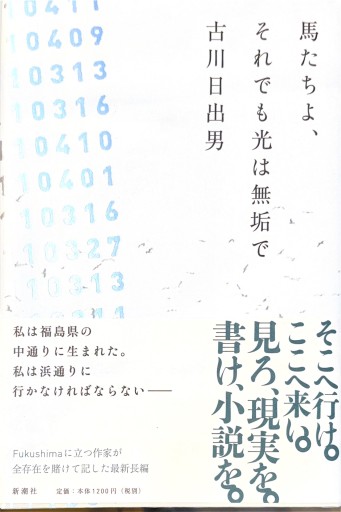 馬たちよ、
それでも光は無垢で
古川日出男
10411
10409
10313
10316
10410
10401
10316
10327
10313
そこへ行け。
ここへ来い。
見ろ、現実を。
書け、小説を。
私は福島県の
中通りに生まれた。
私は浜通りに
行かなければならない──
Fukushimaに立つ作家が
全存在を賭けて記した最新長編
新潮社
定価:本体1200円(税別)